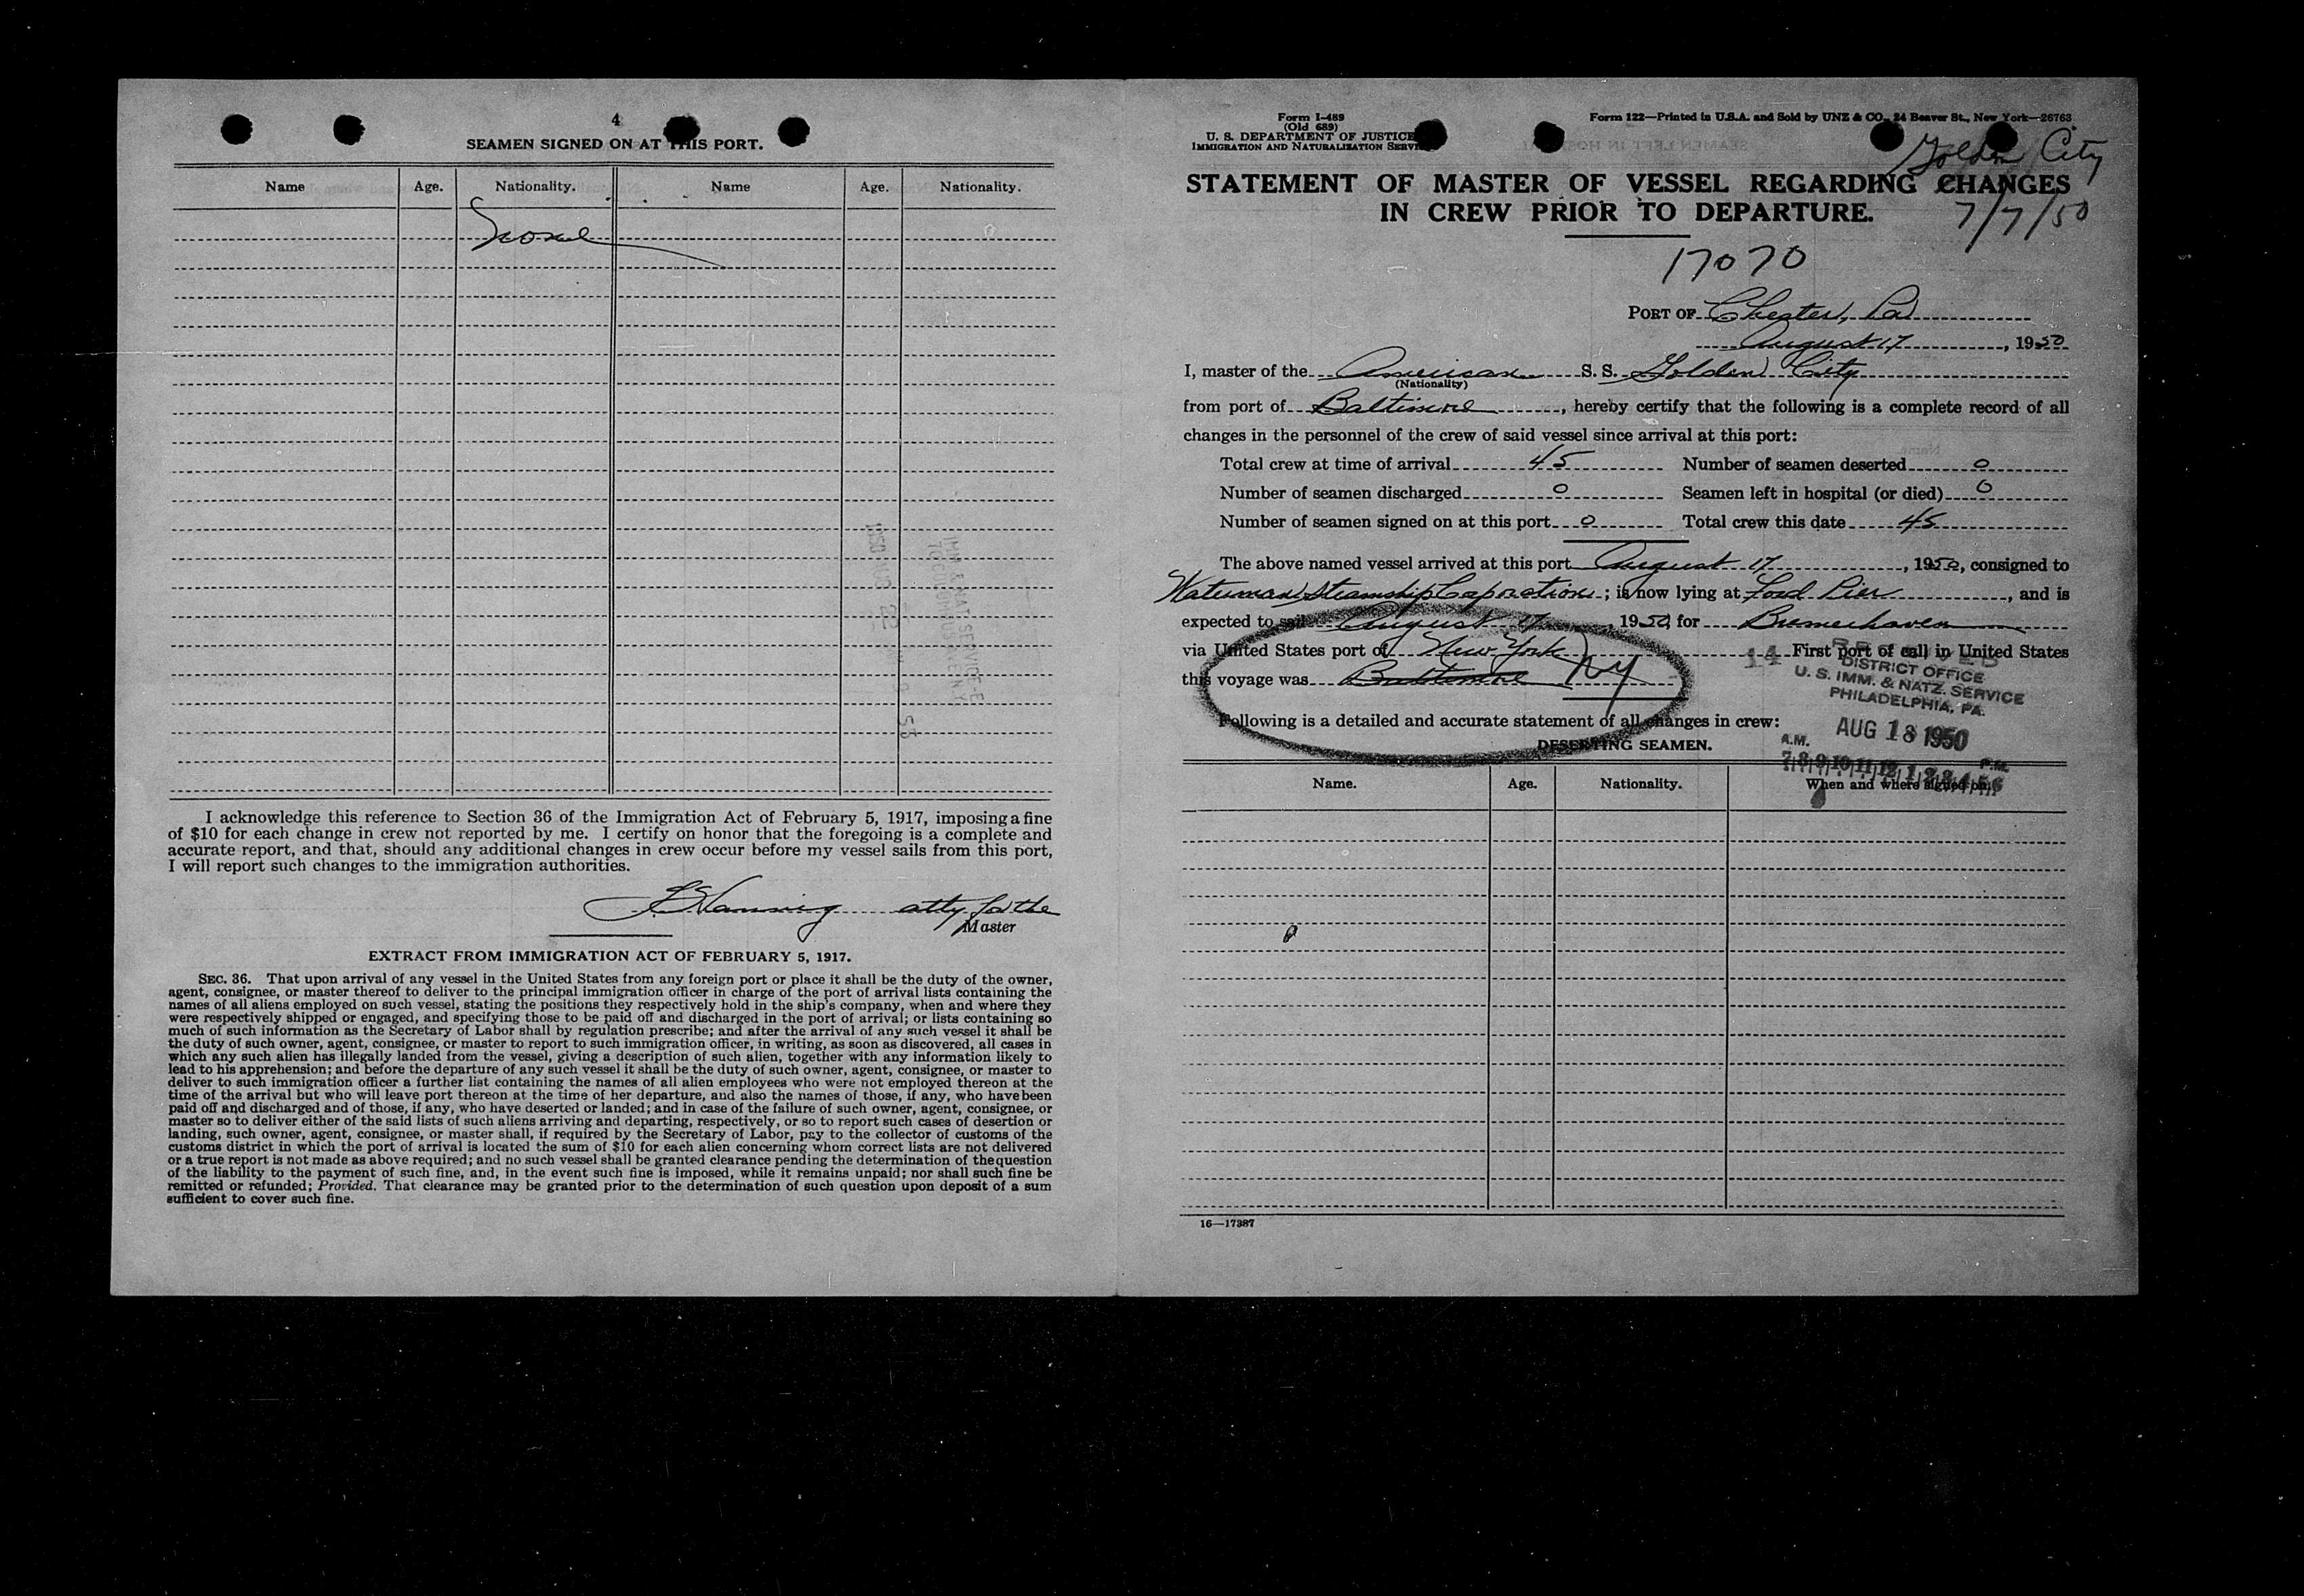 4
SEAMEN SIGNED ON AT THIS PORT.
Name Age. Nationality. Name Age. Nationality.
None
I acknowledge this reference to Section 36 of the Immigration Act of February 5, 1917, imposing a fine
of $10 for each change in crew not reported by me. I certify on honor that the foregoing is a complete and
accurate report, and that, should any additional changes in crew occur before my vessel sails from this port,
I will report such changes to the immigration authorities.
atty for the
Master
EXTRACT FROM IMMIGRATION ACT OF FEBRUARY 5, 1917.
SEC. 36. That upon arrival of any vessel in the United States from any foreign port or place it shall be the duty of the owner,
agent, consignee, or master thereof to deliver to the principal immigration officer in charge of the port of arrival lists containing the
names of all aliens employed on such vessel, stating the positions they respectively hold in the ship's company, when and where they
were respectively shipped or engaged, and specifying those to be paid off and discharged in the port of arrival; or lists containing so
much of such information as the Secretary of Labor shall by regulation prescribe; and after the arrival of any such vessel it shall be
the duty of such owner, agent, consignee, or master to report to such immigration officer, in writing, as soon as discovered, all cases in
which any such alien has illegally landed from the vessel, giving a description of such alien, together with any information likely to
lead to his apprehension; and before the departure of any such vessel it shall be the duty of such owner, agent, consignee, or master to
deliver to such immigration officer a further list containing the names of all alien employees who were not employed thereon at the
time of the arrival but who will leave port thereon at the time of her departure, and also the names of those, if any, who have been
paid off and discharged and of those, if any, who have deserted or landed; and in case of the failure of such owner, agent, consignee, or
master so to deliver either of the said lists of such aliens arriving and departing, respectively, or so to report such cases of desertion or
landing, such owner, agent, consignee, or master shall, if required by the Secretary of Labor, pay to the collector of customs of the
customs district in which the port of arrival is located the sum of $10 for each alien concerning whom correct lists are not delivered
or a true report is not made as above required; and no such vessel shall be granted clearance pending the determination of the question
of the liability to the payment of such fine, and, in the event such fine is imposed, while it remains unpaid; nor shall such fine be
remitted or refunded; Provided, That clearance may be granted prior to the determination of such question upon deposit of a sum
sufficient to cover such fine.
Form I-489
(Old 689)
U. S. DEPARTMENT OF JUSTICE
IMMIGRATION AND NATURALIZATION SERVICE
Form 122—Printed in U.S.A. and Sold by UNZ & CO., 24 Beaver St., New York—26763
Golden City
STATEMENT OF MASTER OF VESSEL REGARDING CHANGES
IN CREW PRIOR TO DEPARTURE.
7/7/50
17070
PORT OF Chester, Pa
August 17, 1950
I, master of the American S. S. Golden City
(Nationality)
from port of Baltimore, hereby certify that the following is a complete record of all
changes in the personnel of the crew of said vessel since arrival at this port:
Total crew at time of arrival 45 Number of seamen deserted 0
Number of seamen discharged 0 Seamen left in hospital (or died) 0
Number of seamen signed on at this port 0 Total crew this date 45
The above named vessel arrived at this port August 17, 1950, consigned to
Waterman Steamship Corporation; is now lying at Ford Pier, and is
expected to sail August 17, 1950, for Bremerhaven
via United States port of New York First port of call in United States
this voyage was Baltimore NY
14 RECEIVED
DISTRICT OFFICE
U. S. IMM. & NATZ. SERVICE
PHILADELPHIA, PA.
AUG 18 1950
A.M. P.M.
7 8 9 10 11 12 1 2 3 4 5 6
Following is a detailed and accurate statement of all changes in crew:
DESERTING SEAMEN.
Name. Age. Nationality. When and where signed on.
16—17387